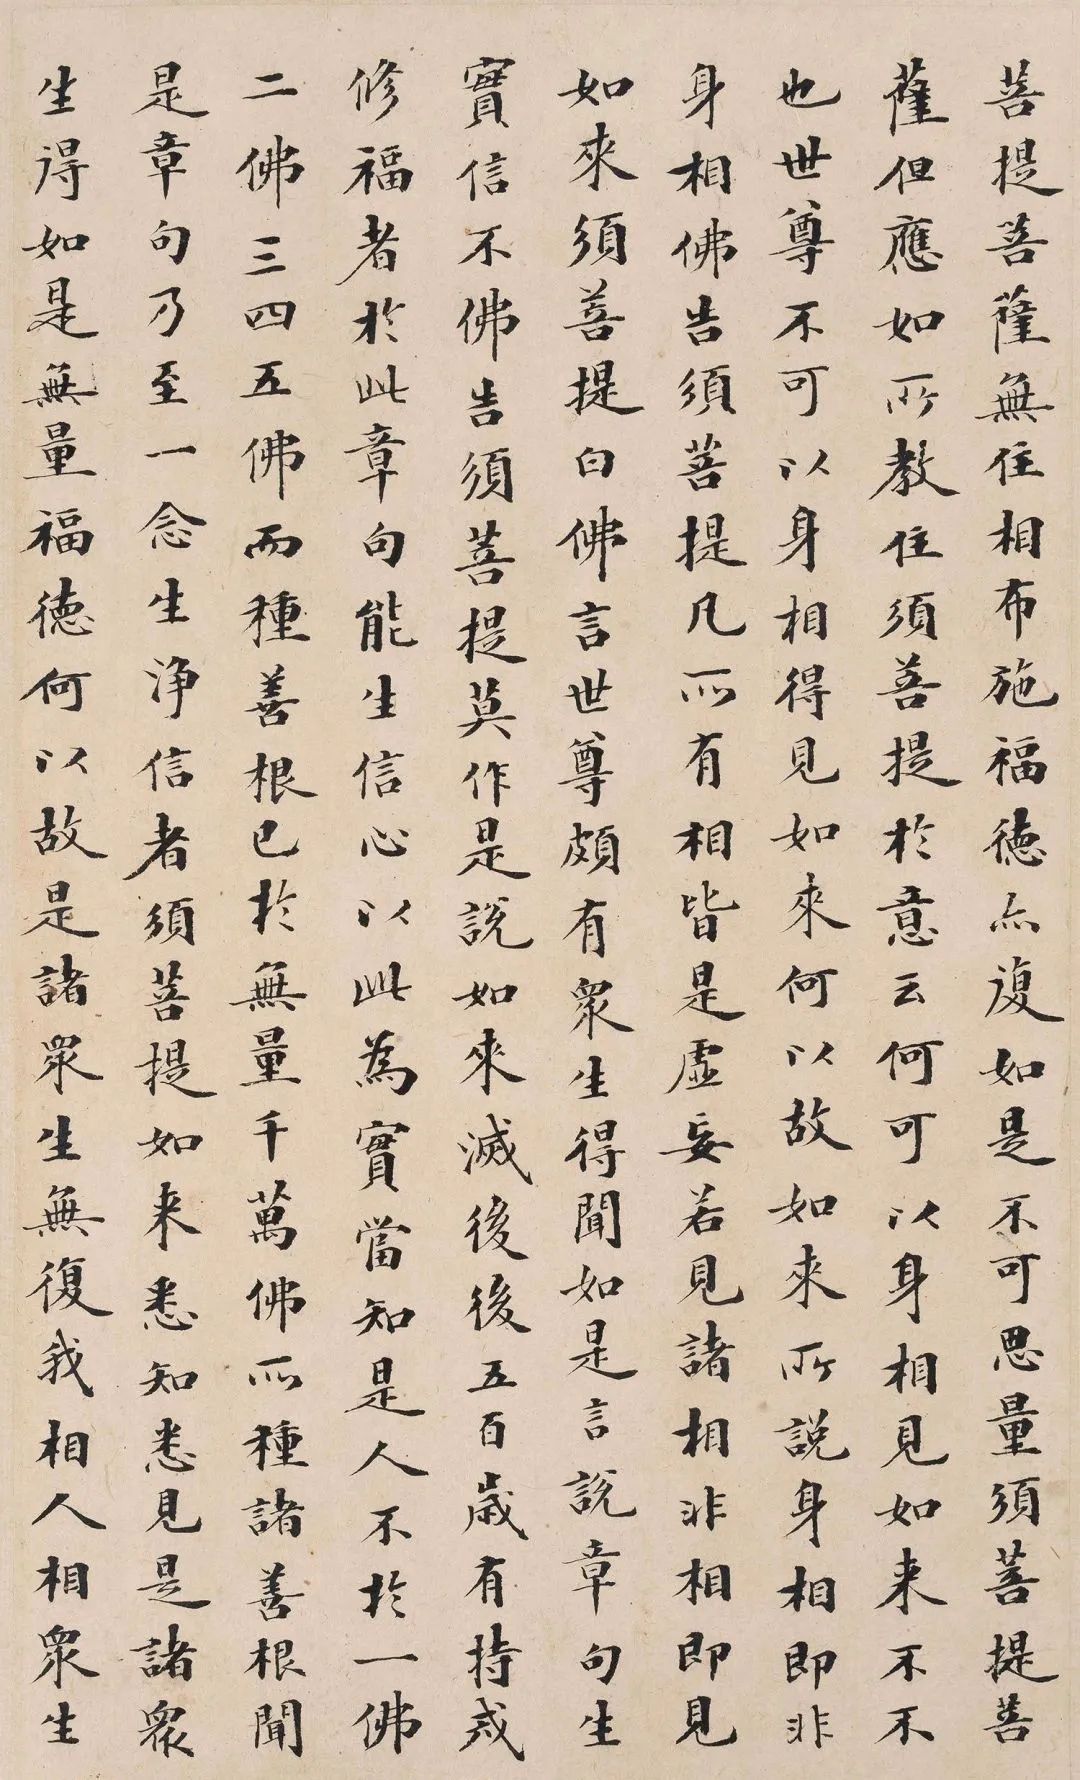 菩提菩薩無住相布施福德亦復如是不可思量須菩提菩
薩但應如所教住須菩提於意云何可以身相見如来不不
也世尊不可以身相得見如來何以故如來所說身相即非
身相佛告須菩提凡所有相皆是虛妄若見諸相非相即見
如來須菩提白佛言世尊頗有眾生得聞如是言說章句生
實信不佛告須菩提莫作是說如來滅後後五百歲有持戒
修福者於此章句能生信心以此為實當知是人不於一佛
二佛三四五佛而種善根已於無量千萬佛所種諸善根聞
是章句乃至一念生淨信者須菩提如来悉知悉見是諸眾
生得如是無量福德何以故是諸眾生無復我相人相眾生